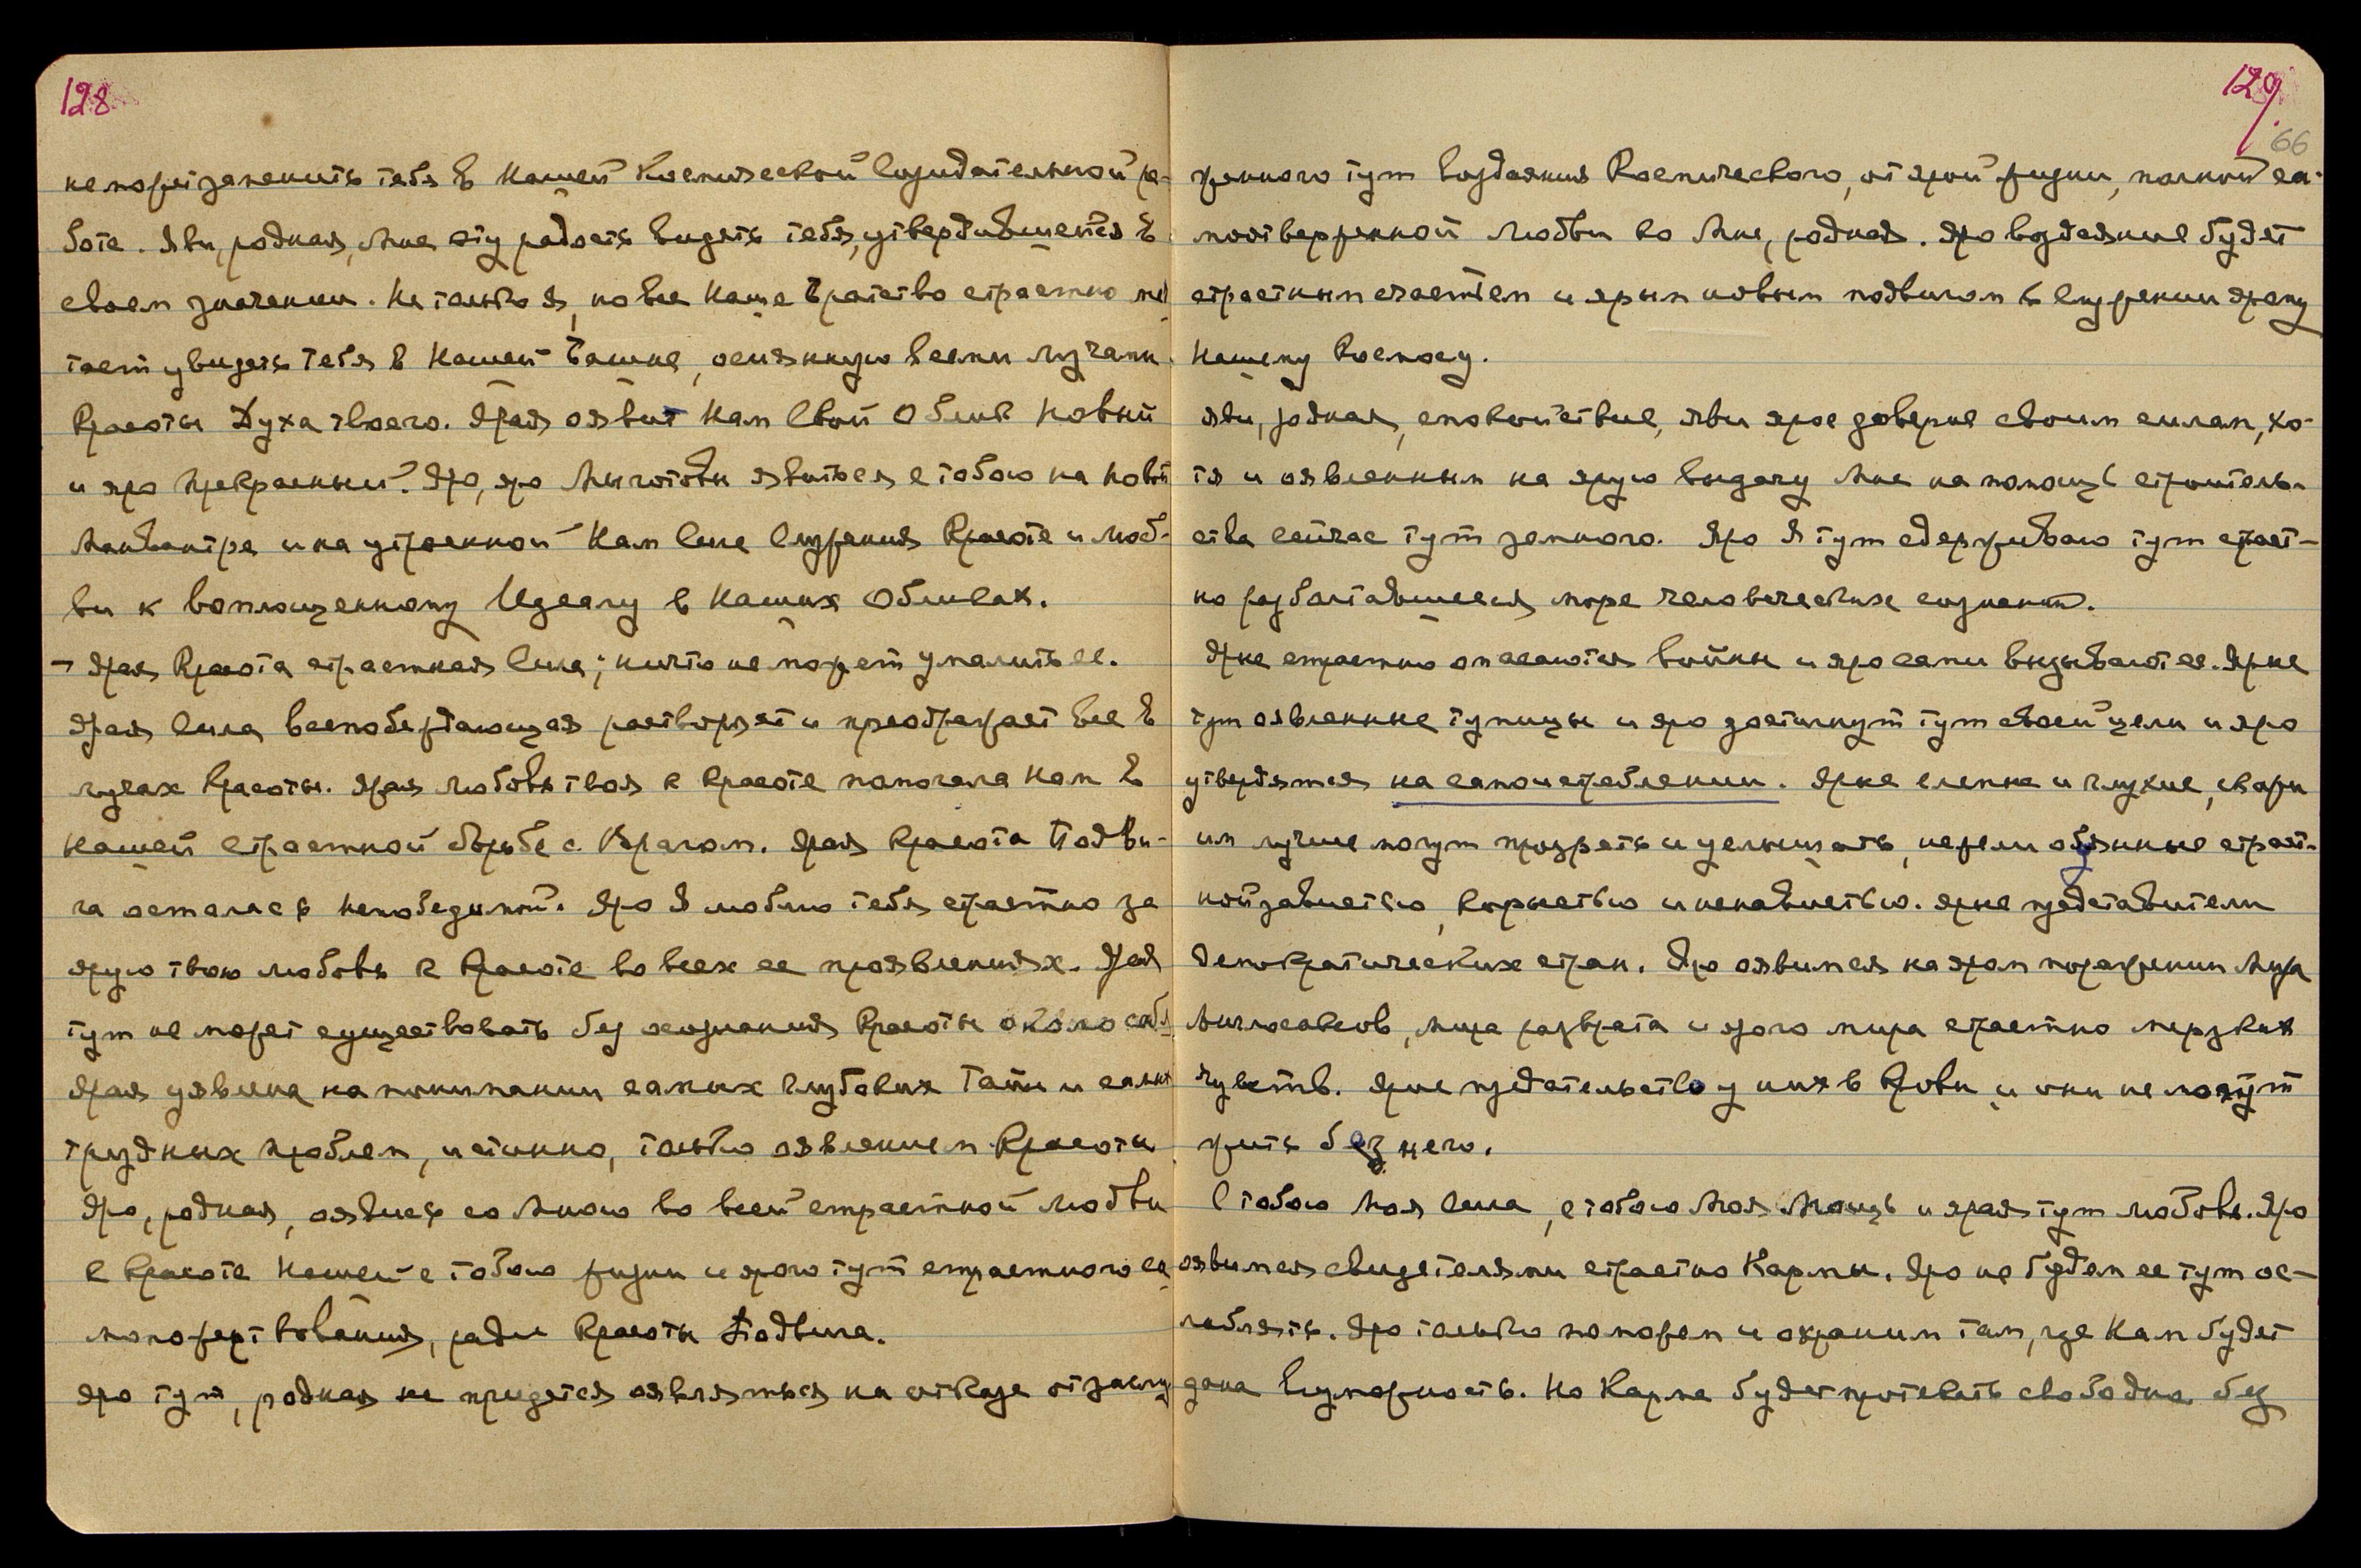 128
не может заменить тебя в Нашей Космической Созидательной ра-
боте. Яви, родная, Мне эту радость видеть тебя, утвердившейся в
своем значении. Не только Я, но все Наше Братство страстно меч
тает увидеть Тебя в Нашей Башне, осиянную всеми лучами
Красоты Духа твоего. Ярая оявит Нам Свой Облик Новый
и яро Прекрасный. Яро, яро Мы готовы явиться с тобою на Новой
Манвантаре и на утроенной Нам Силе Служения Красоте и Люб-
ви к воплощенному Идеалу в Наших Обликах.
– Ярая Красота страстная Сила; ничто не может умалить ее.
Ярая Сила всепобеждающая растворяет и преображает все в
лучах Красоты. Ярая любовь твоя к Красоте помогала Нам в
Нашей страстной борьбе с Врагом. Ярая Красота Подви-
га осталась Непобедимой. Яро Я люблю тебя страстно за
ярую твою любовь к Красоте во всех ее проявлениях. Ярая
тут не может существовать без осознания Красоты около себя
Ярая уявлена на понимании самых глубоких Тайн и самых
трудных Проблем, истинно, только оявлением Красоты
Яро, родная, оявись со Мною во всей страстной Любви
к Красоте Нашей с тобою жизни и ярого тут страстного са
мопожертвования, ради Красоты Подвига.
Яро тут, родная не придется оявляться на отказе от заслу
129
66
женного тут Воздаяния Космического, от ярой жизни, полной са-
моотверженной Любви ко Мне, родная. Яро воздаяние будет
страстным счастьем и ярым новым подвигом в Служении Ярому
Нашему Космосу.
Яви, родная, спокойствие, яви ярое доверие своим силам, хо-
тя и оявленным на ярую выдачу Мне на помощь строитель-
ства сейчас тут земного. Яро Я тут сдерживаю тут страст-
но разболтавшееся море человеческих сознаний.
Ярые страстно опасаются войны и яро сами вызывают ее. Ярые
тут оявленные тупицы и яро достигнут тут своей цели и яро
утвердятся на самоистреблении. Ярые слепые и глухие, скоры
им лучше могут прозреть и услышать, нежели обуянные страст-
ной завистью, корыстью и ненавистью. Ярые представители
демократических стран. Яро оявимся на яром поражении Мира
Англосаксов, Мира разврата и ярого мира страстно мерзких
чувств. Ярое предательство у них в Крови и они не могут
жить без него.
С тобою Моя Сила, с тобою Моя Мощь и ярая тут Любовь. Яро
оявимся свидетелями страстно Кармы. Яро не будем ее тут ос-
лаблять. Яро только поможем и охраним там, где Нам будет
дана Возможность. Но Карма будет протекать свободно без